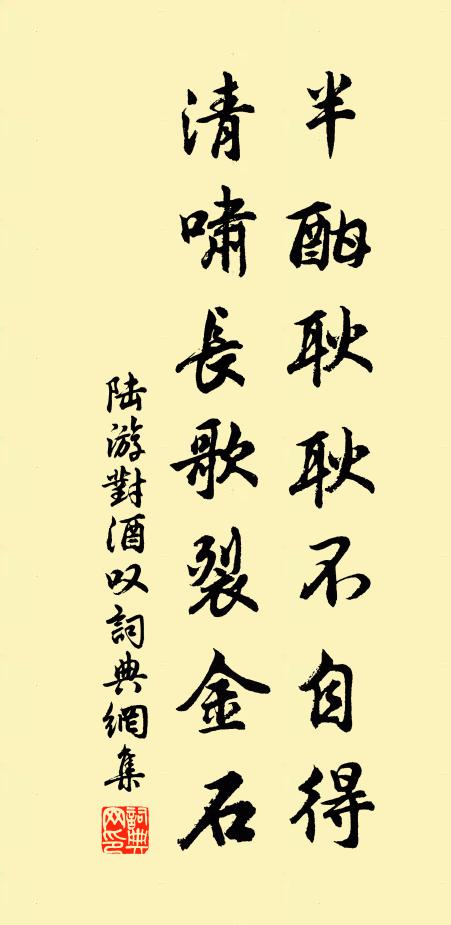 半酣耿耿不自得
清嘯長歌裂金石
陆游對酒叹詞典網集
詞典网印